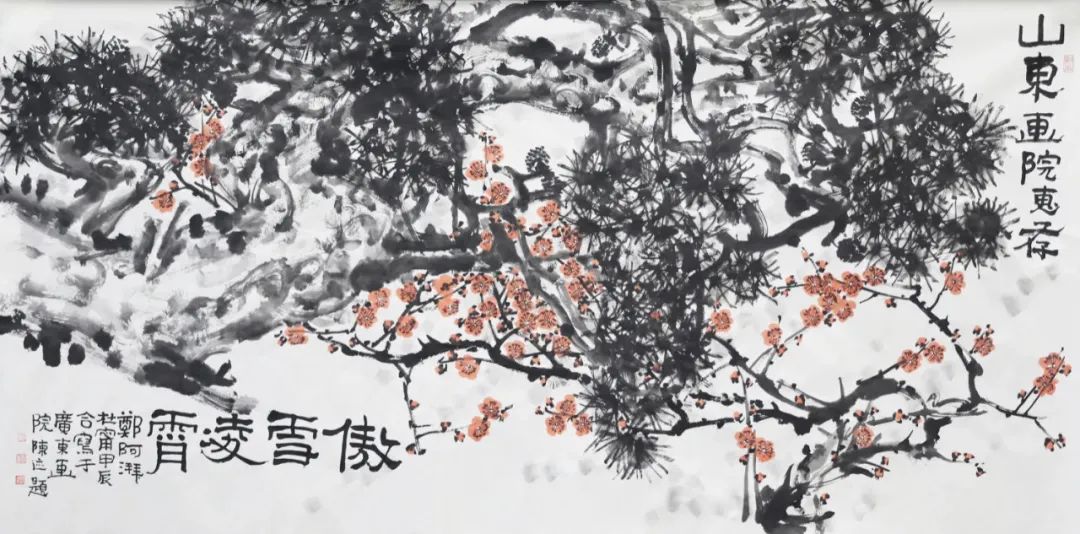 山東画院惠存
傲雪凌霄
鄭阿湃
杜甯甲辰
合寫于
廣東画
院陳迹題